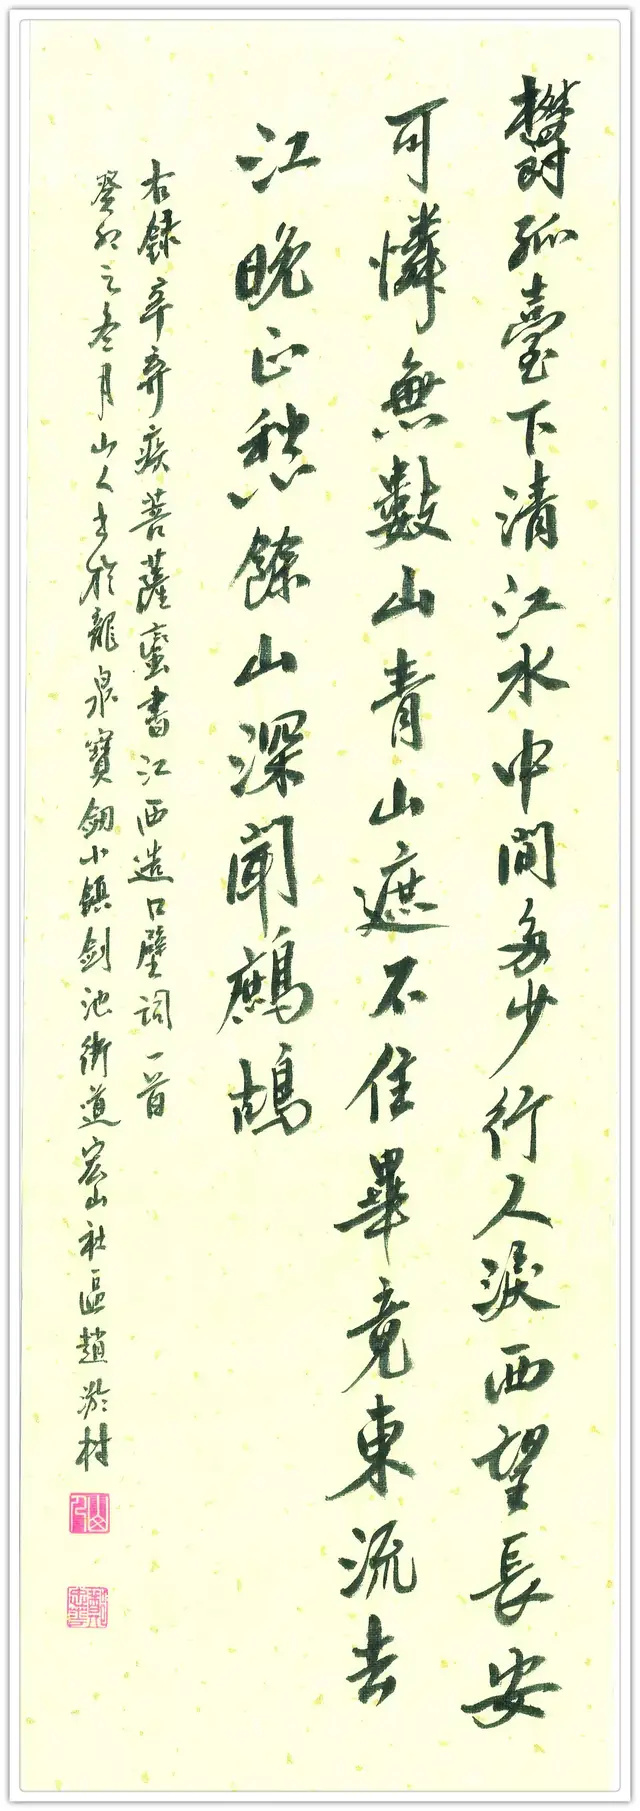 鬱孤臺下清江水中間多少行人淚西望長安
可憐無數山青山遮不住畢竟東流去
江晚正愁餘山深聞鷓鴣
右錄辛弃疾菩薩蠻書江西造口壁詞一首
癸卯之冬月山人書於龍泉寶劒小鎮剑池街道宏山社區趙村
山人